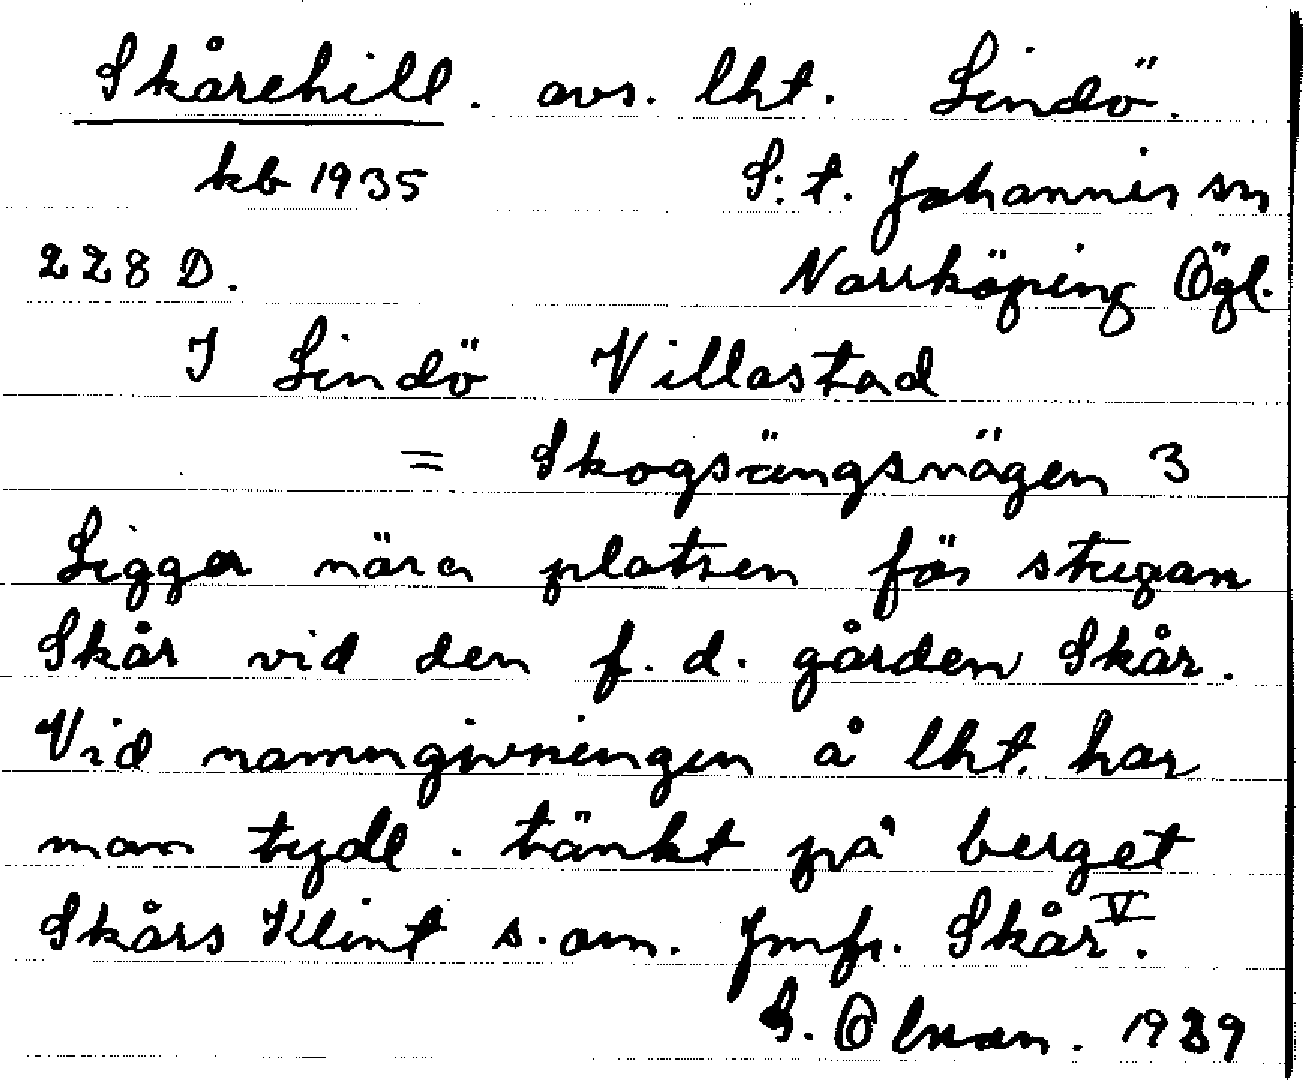 Skårehill. avs. lht. Lindö.
kb 1935 S:t. Johannis sn
228 D. Norrköping Ögl.
I Lindö Villastad
= Skogsängsvägen 3
Ligger nära platsen för stugan
Skår vid den f. d. gården Skår.
Vid namngivningen å lht. har
man tydl. tänkt på berget
Skårs Klint s. om. Jmfr. Skår V.
1939